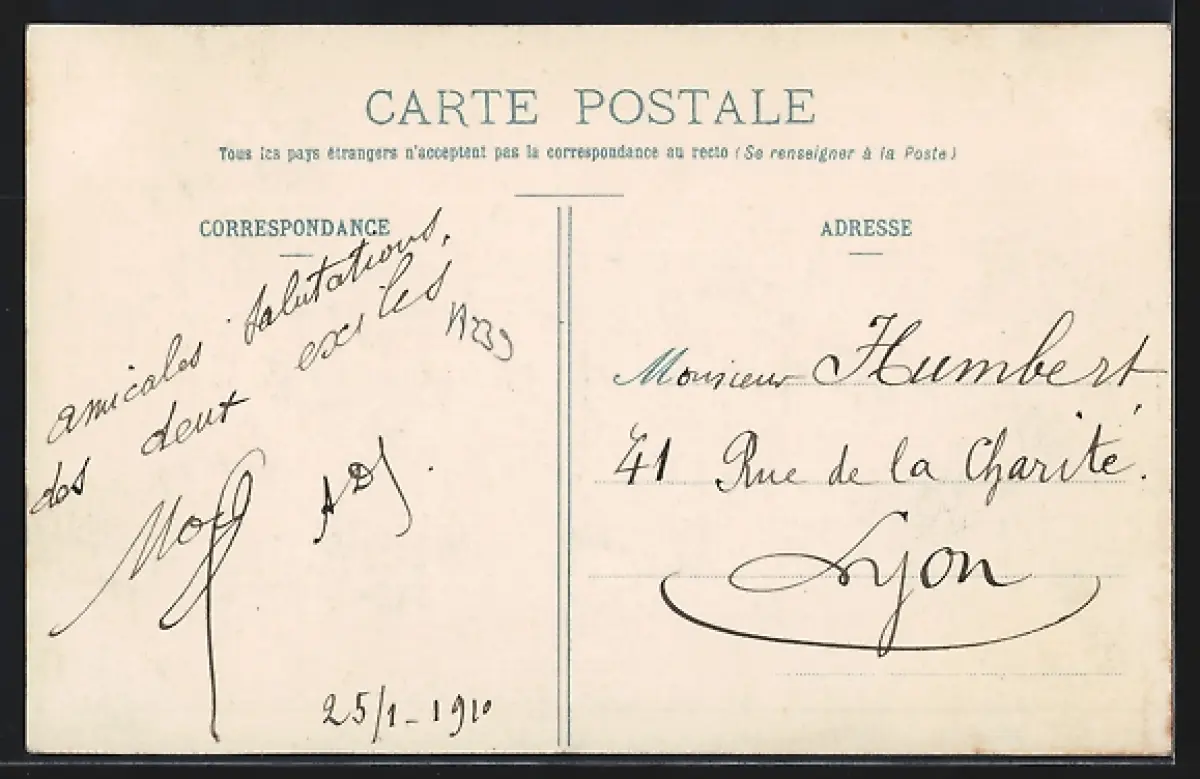 CARTE POSTALE
Tous les pays étrangers n'acceptent pas la correspondance au recto (Se renseigner à la Poste)
CORRESPONDANCE
amicales salutations,
des deux exilés
ADS.
25/1-1910
ADRESSE
Monsieur Humbert
41 Rue de la Charité.
Lyon